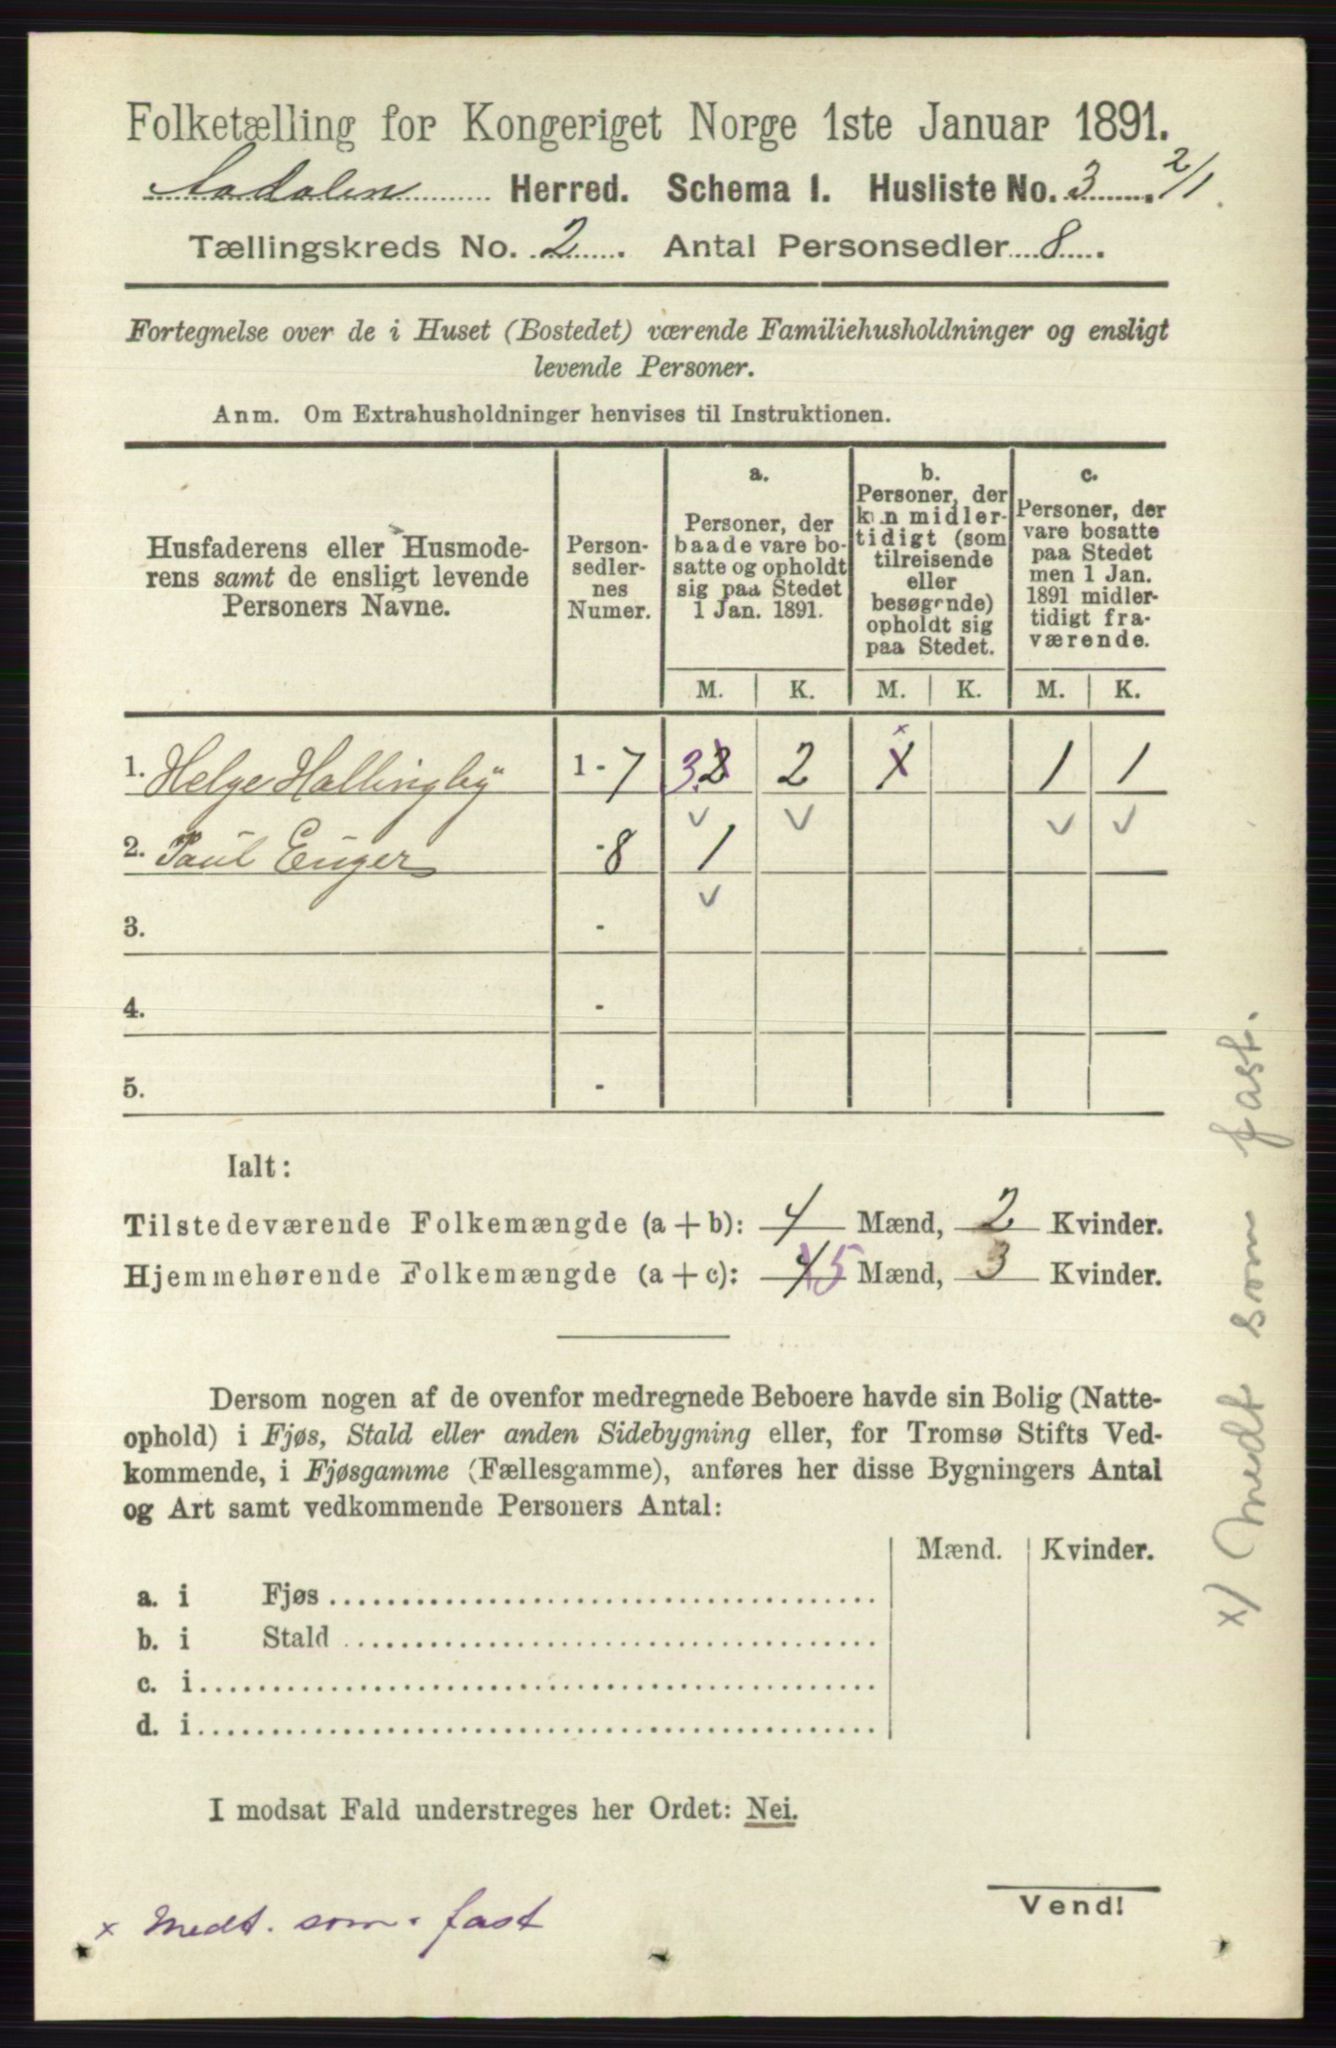 Folketælling for Kongeriget Norge 1ste Januar 1891.
Aadalen Herred. Schema 1. Husliste No. 3. 2/1
Tællingskreds No. 2. Antal Personsedler 8.
Fortegnelse over de i Huset (Bostedet) værende Familiehusholdninger og ensligt
levende Personer.
Anm. Om Extrahusholdninger henvises til Instruktionen.
Husfaderens eller Husmode-
rens samt de ensligt levende
Personers Navne.
Person-
sedler-
nes
Numer.
a.
Personer, der
baade vare bo-
satte og opholdt
sig paa Stedet
1 Jan. 1891.
b.
Personer, der
kun midler-
tidigt (som
tilreisende
eller
besøgende)
opholdt sig
paa Stedet.
c.
Personer, der
vare bosatte
paa Stedet
men 1 Jan.
1891 midler-
tidigt fra-
værende.
M. K. M. K. M. K.
1. Helge Hallingby 1-7 3 2 2 x 1 1 1
2. Paul Enger -8 1
3. -
4. -
5. -
Ialt:
Tilstedeværende Folkemængde (a+b): 4 Mænd, 2 Kvinder.
Hjemmehørende Folkemængde (a+c): 4 5 Mænd, 3 Kvinder.
Dersom nogen af de ovenfor medregnede Beboere havde sin Bolig (Natte-
ophold) i Fjøs, Stald eller anden Sidebygning eller, for Tromsø Stifts Ved-
kommende, i Fjøsgamme (Fællesgamme), anføres her disse Bygningers Antal
og Art samt vedkommende Personers Antal:
Mænd. Kvinder.
a. i Fjøs
b. i Stald
c. i
d. i
I modsat Fald understreges her Ordet: Nei.
Vend!
x Medt. som fast
x) Medt som fast.